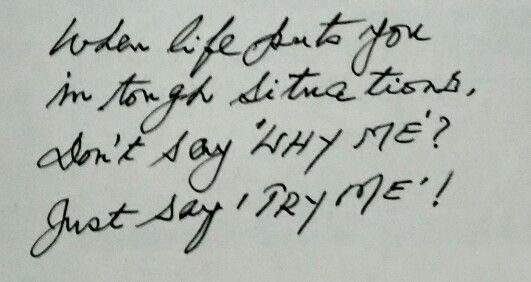 When life puts you
in tough situations,
Don't say 'WHY ME'?
Just say 'TRY ME'!